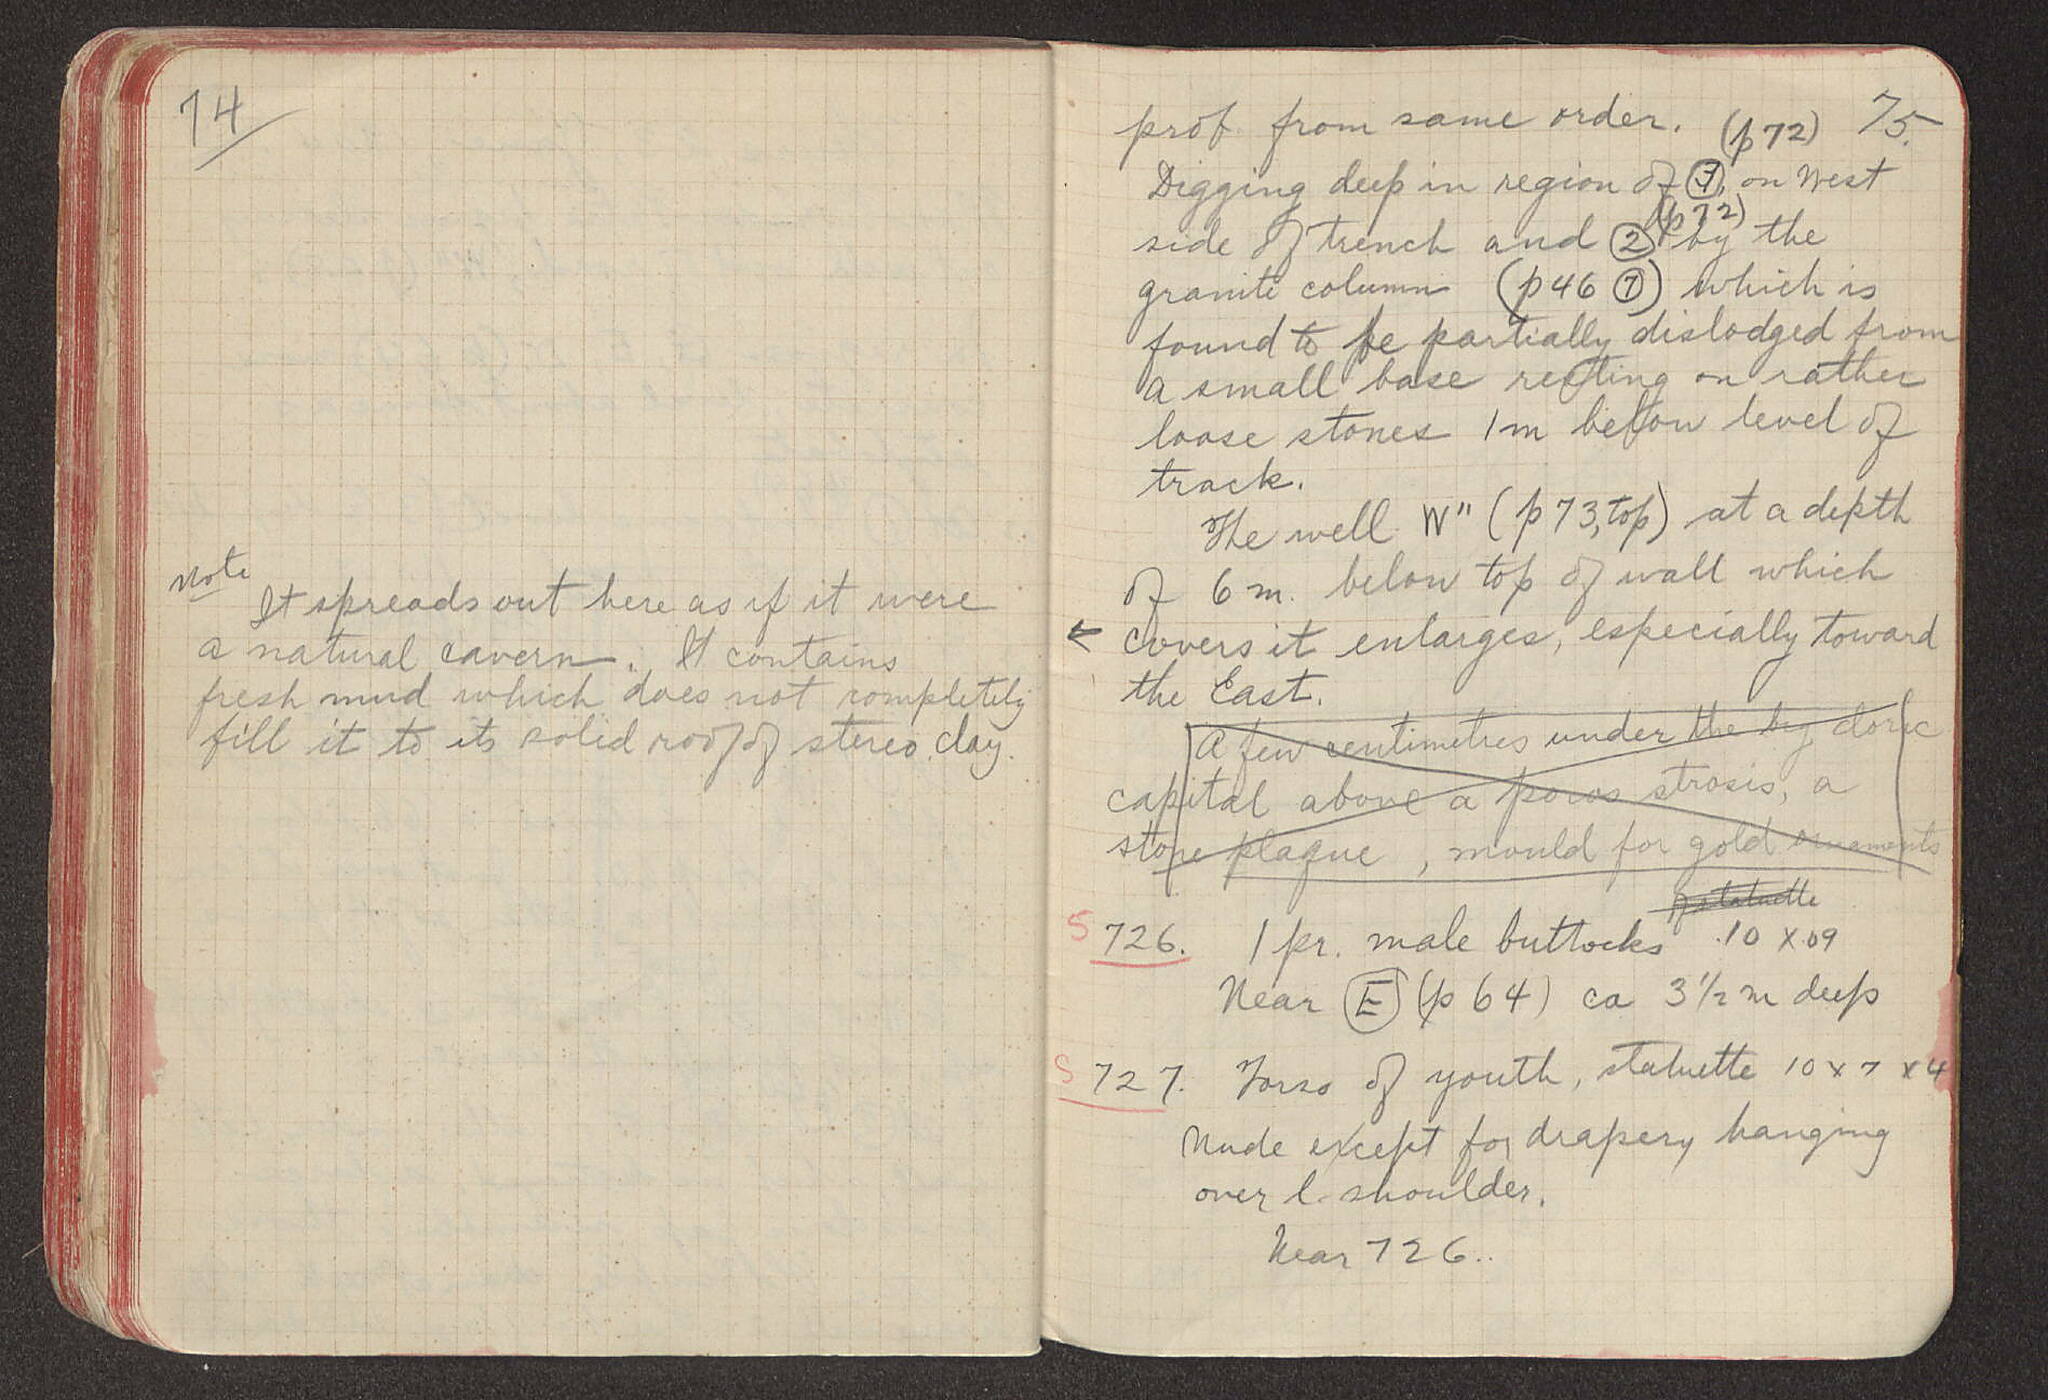 74
Note
It spreads out here as if it were
a natural cavern. It contains
fresh mud which does not completely
fill it to its solid roof of stereo clay.
75.
prob from same order. (p 72)
Digging deep in region of ③, on West
side of trench and ② (p 72) by the
granite column (p 46 ⑦) which is
found to be partially dislodged from
a small base resting on rather
loose stones 1m below level of
track.
The well W" (p 73, top) at a depth
of 6 m. below top of wall which
← covers it enlarges, especially toward
the East.
A few centimetres under the big doric
capital above a poros strosis, a
stone plaque, mould for gold ornaments
of statuette
S 726. 1 pr. male buttocks .10 x .09
Near Ⓔ (p 64) ca 3 1/2 m deep
S 727. Torso of youth, statuette 10 x 7 x 4
Nude except for drapery hanging
over l. shoulder.
Near 726..